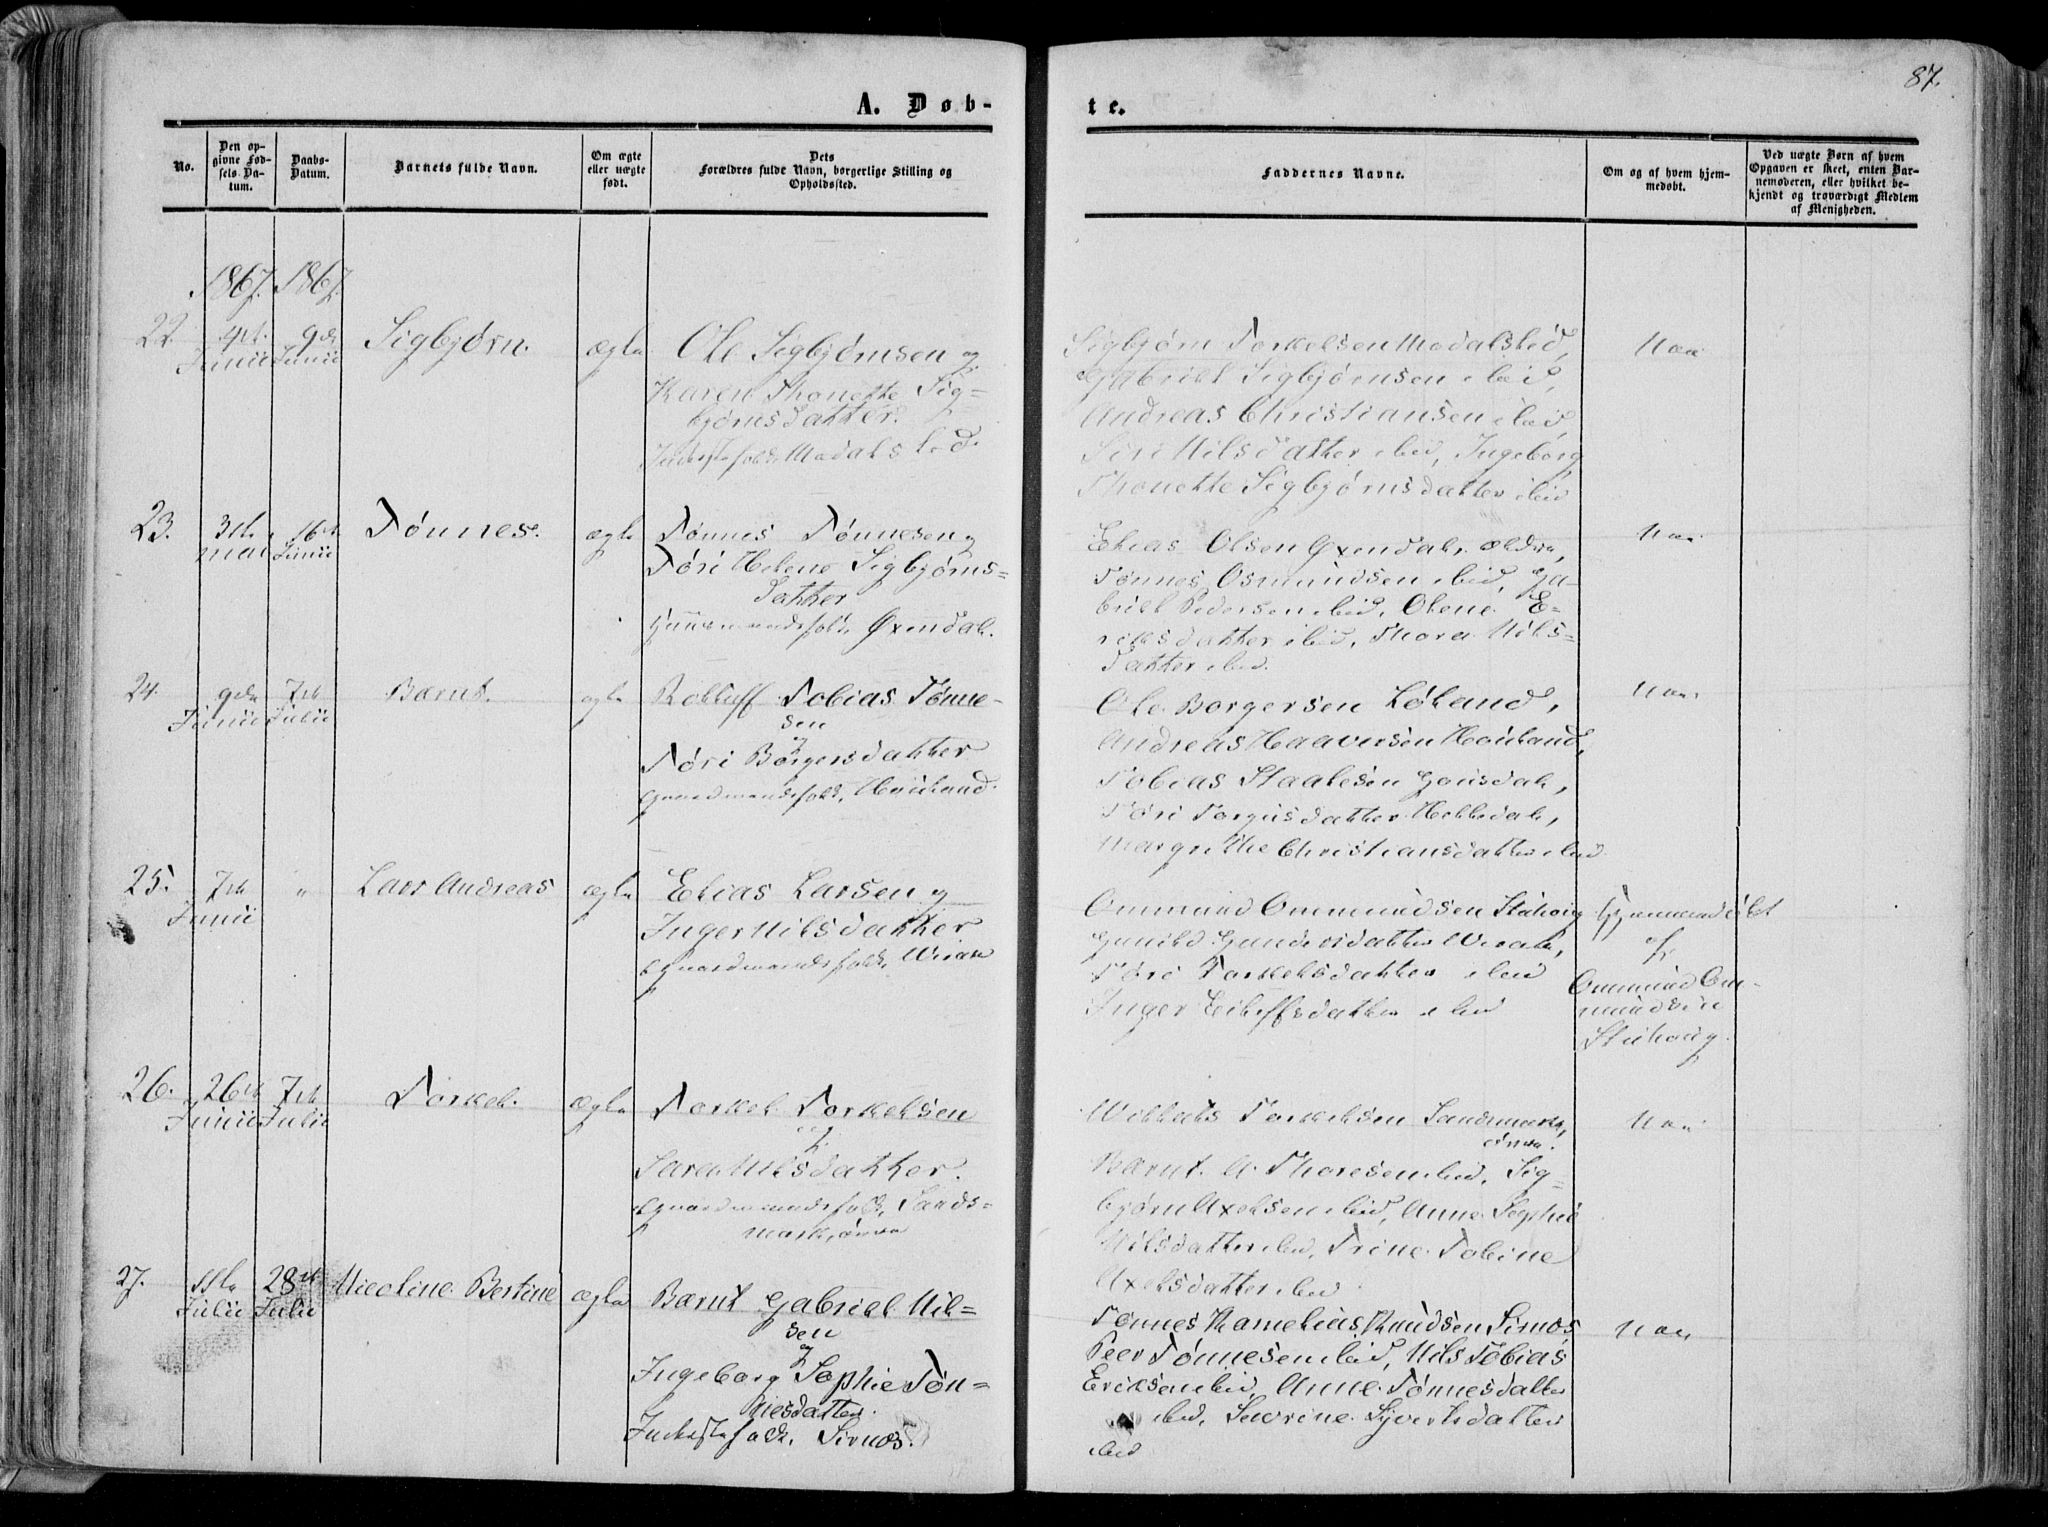 87.
A. Døb-
te.
No.
Den op-
givne Fød-
sels-Da-
tum.
Daabs-
Datum.
Barnets fulde Navn.
Om ægte
eller uægte
født.
Dets
Forældres fulde Navn, borgerlige Stilling og
Opholdssted.
Faddernes Navne.
Om og af hvem hjem-
medøbt.
Ved uægte Børn af hvem
Opgaven er skeet, enten Bar-
nemoderen, eller hvilket be-
kjendt og troværdigt Medlem
af Menigheden.
1867. 1867.
22.
4de Junii
9de Junii
Sigbjørn.
ægte
Ole Sigbjørnsen og
Karen Thonette Sig=
bjørnsdatter.
Inderstefolk, Modalsled.
Sigbjørn Torkelsen Modalsled,
Gabriel Sigbjørnsen ibid,
Andreas Christiansen ibid,
Siri Nilsdatter ibid, Ingeborg
Thonette Sigbjørnsdatter ibid
Nei
23.
3die Mai
16de Junii
Tønnes.
ægte
Tønnes Tønnesen og
Tøri Helene Sigbjørns=
datter
Huusmandsfolk, Øxendal.
Elias Olsen Øxendal,
Tønnes Osmundsen ibid, Ga-
briel Pedersen ibid, Olene E-
riksdatter ibid, Thora Nils=
datter ibid.
Nei
24.
9de Junii
7de Julii
Bærnt.
ægte
Rolluff Tobias Tønne-
sen
og
Tøri Børgersdatter
Gaardmandsfolk, Houland.
Ole Børgersen Løland,
Andreas Haaversen Houland,
Tobias Staalesen Gousdal,
Tøri Torgiisdatter Helledal,
Margrethe Christiansdatter ibid
Nei
25.
7de Junii
"
Lars Andreas
ægte
Elias Larsen og
Inger Nilsdatter
Gaardmandsfolk,
Ommund Ommundsen
Gunild Gundersdatter
Tøri Torkelsdatter ibid
Inger Eileffsdatter ibid
Hjemmedøbt
af
Ommund Om-
mundsen
26.
26de Junii
7de Julii
Torkel.
ægte
Torkel Torkelsen
og
Saren Nilsdatter.
Gaardmandsfolk, Sands=
mark, øvre
Willads Torkelsen Sandsmark,
øvre.
Bærnt A. Thoresen ibid, Sig-
bjørn Axelsen ibid, Anne Sophie
Nilsdatter ibid, Trine Tobine
Axelsdatter ibid
Nei
27.
11te Julii
28de Julii
Nicoline Bertine
ægte
Bærnt Gabriel Nil=
sen
og
Ingeborg Sophie Tøn=
nesdatter.
Inderstefolk, Sirnæs.
Tønnes Kornelius Knudsen Sirnæs
Peer Tønnesen ibid, Nils Tobias
Eriksen ibid, Anne Tønnesdatter
ibid, Sevrine Syvertsdatter
ibid
Nei